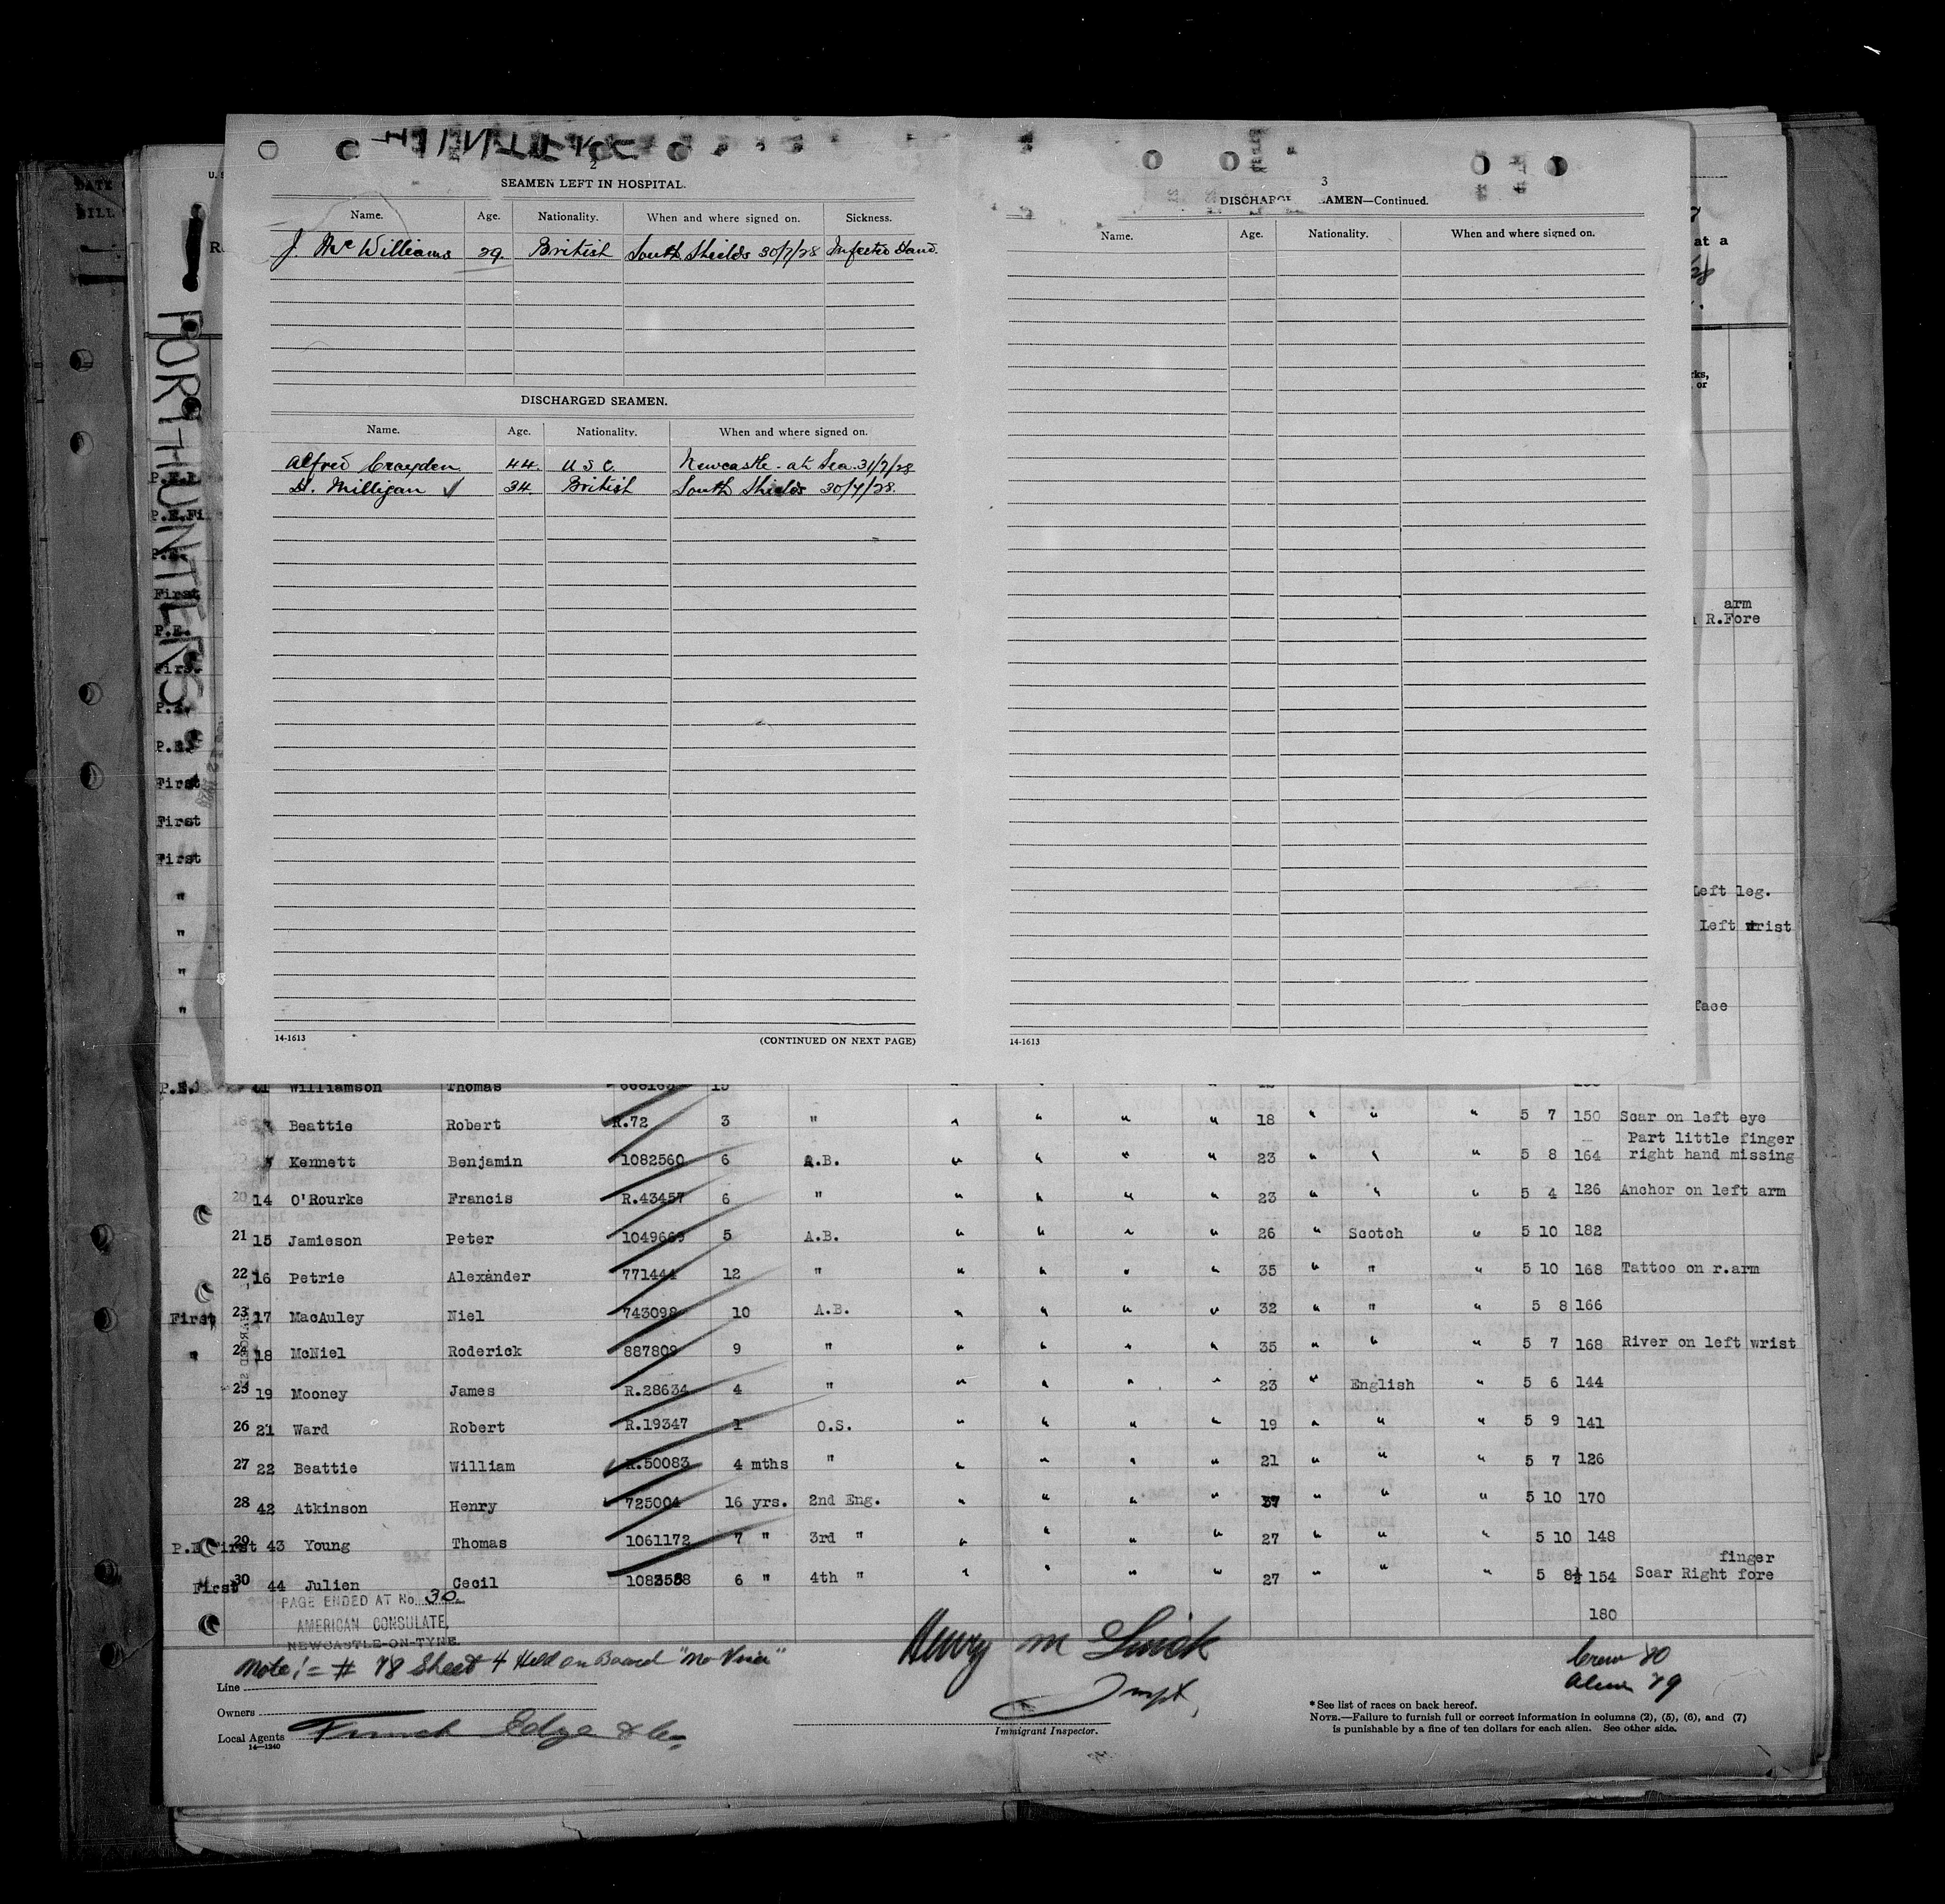 PORT HUNTERS
2
SEAMEN LEFT IN HOSPITAL.
Name. Age. Nationality. When and where signed on. Sickness.
J. McWilliams 29. British South Shields 30/7/28 Infected Hand.
DISCHARGED SEAMEN.
Name. Age. Nationality. When and where signed on.
Alfred Crayden 44. U S C. Newcastle - at Sea. 31/7/28
D. Milligan 34. British South Shields 30/7/28.
14-1613 (CONTINUED ON NEXT PAGE)
3
AMEN—Continued.
Name. Age. Nationality. When and where signed on.
14-1613
at a
arm
R.Fore
Left leg.
Left wrist
face
P.E.
First
P.E.
First
First
First
Williamson Thomas
Beattie Robert R.72 3 " " " " " 18 " " " 5 7 150 Scar on left eye
Kennett Benjamin 1082560 6 A.B. " " " " 23 " " " 5 8 164 Part little finger right hand missing
20 14 O'Rourke Francis R.43457 6 " " " " " 23 " " " 5 4 126 Anchor on left arm
21 15 Jamieson Peter 1049669 5 A.B. " " " " 26 " Scotch " 5 10 182
22 16 Petrie Alexander 771444 12 " " " " " 35 " " " 5 10 168 Tattoo on r.arm
First 23 17 MacAuley Niel 743098 10 A.B. " " " " 32 " " " 5 8 166
" 24 18 McNiel Roderick 887809 9 " " " " " 35 " " " 5 7 168 River on left wrist
25 19 Mooney James R.28634 4 " " " " " 23 " English " 5 6 144
26 21 Ward Robert R.19347 1 O.S. " " " " 19 " " " 5 9 141
27 22 Beattie William R.50083 4 mths " " " " " 21 " " " 5 7 126
28 42 Atkinson Henry 725004 16 yrs. 2nd Eng. " " " " 37 " " " 5 10 170
P.E. First 29 43 Young Thomas 1061172 7 " 3rd " " " " " 27 " " " 5 10 148
First 30 44 Julien Cecil 6 " 4th " " " " " 27 " " " 5 8½ 154 Scar Right fore finger
180
PAGE ENDED AT No. 30.
AMERICAN CONSULATE,
NEWCASTLE-ON-TYNE.
Note! = # 78 Sheet 4 Held on Board "No Visa"
Crew 80
Alien 79
Line
Owners
Local Agents Funch Edye & Co.
14—1240
Henry M
Inspt.
Immigrant Inspector.
*See list of races on back hereof.
NOTE.—Failure to furnish full or correct information in columns (2), (5), (6), and (7)
is punishable by a fine of ten dollars for each alien. See other side.